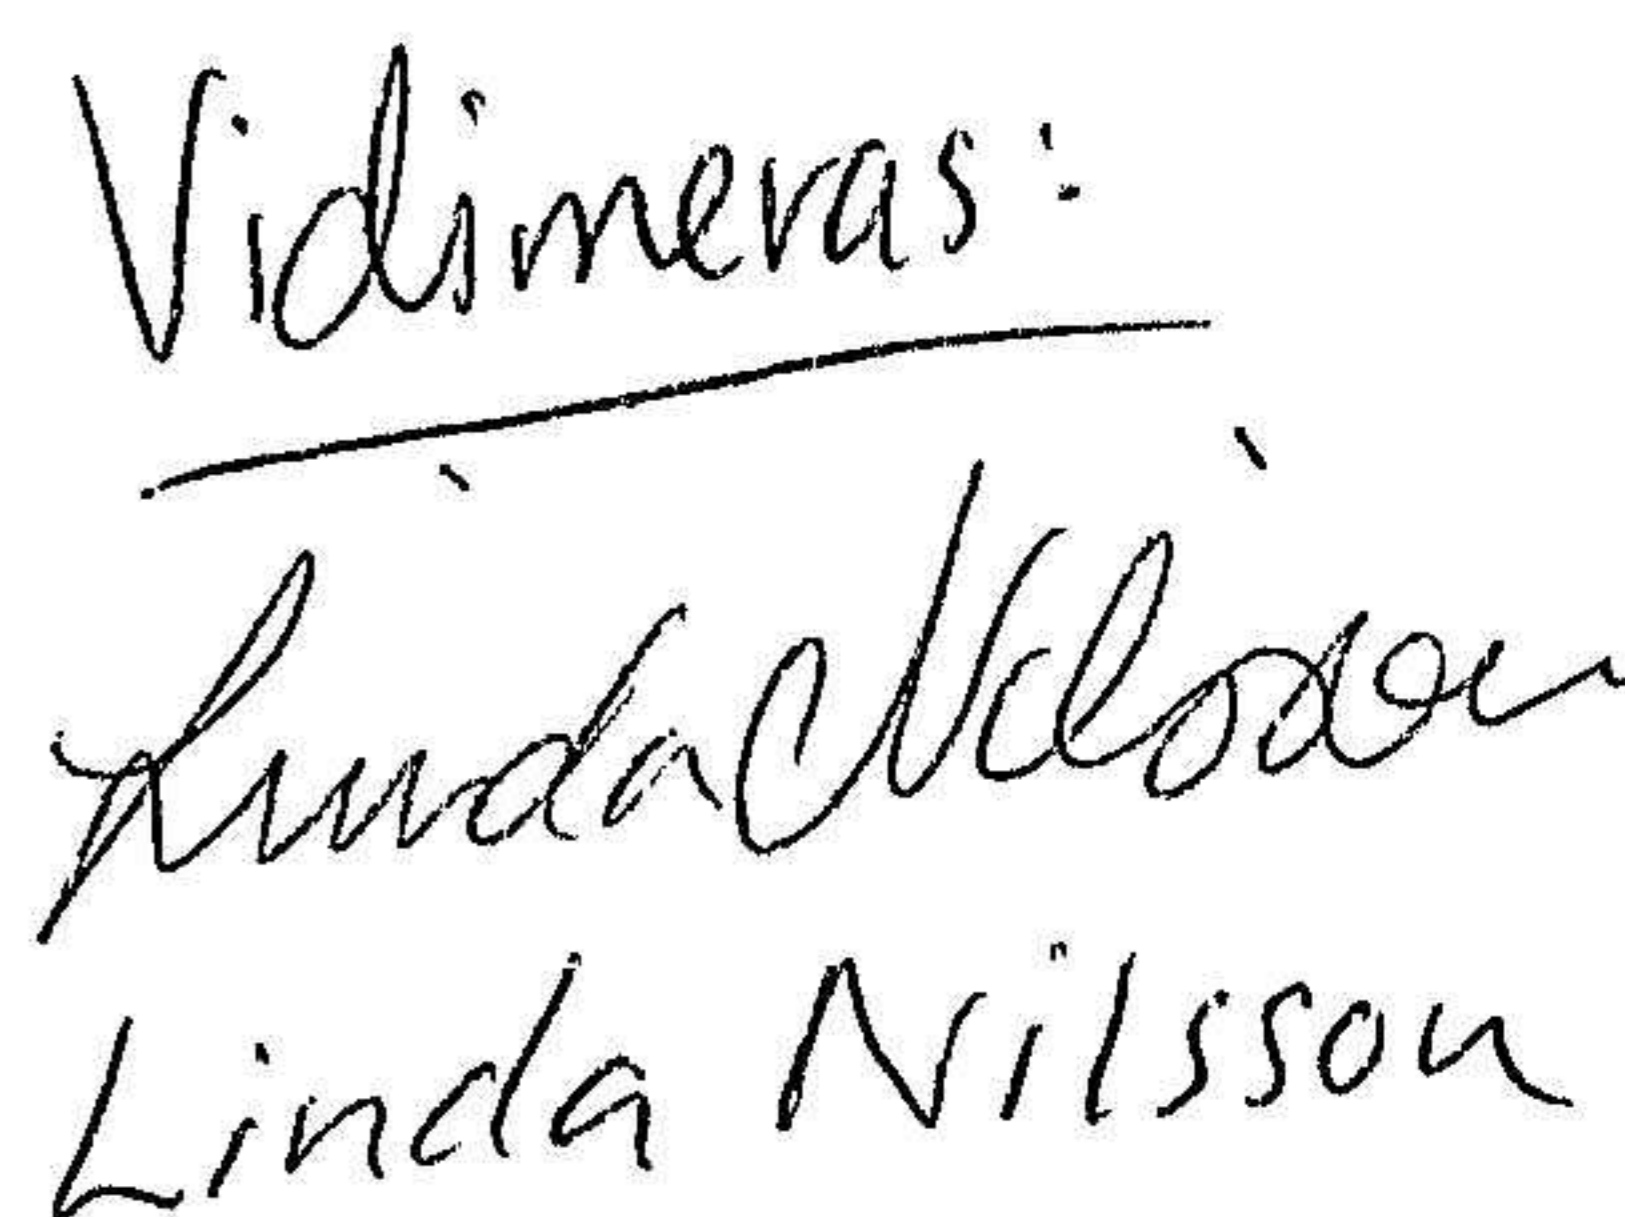 Vidimeras:
Linda Nilsson
Linda Nilsson